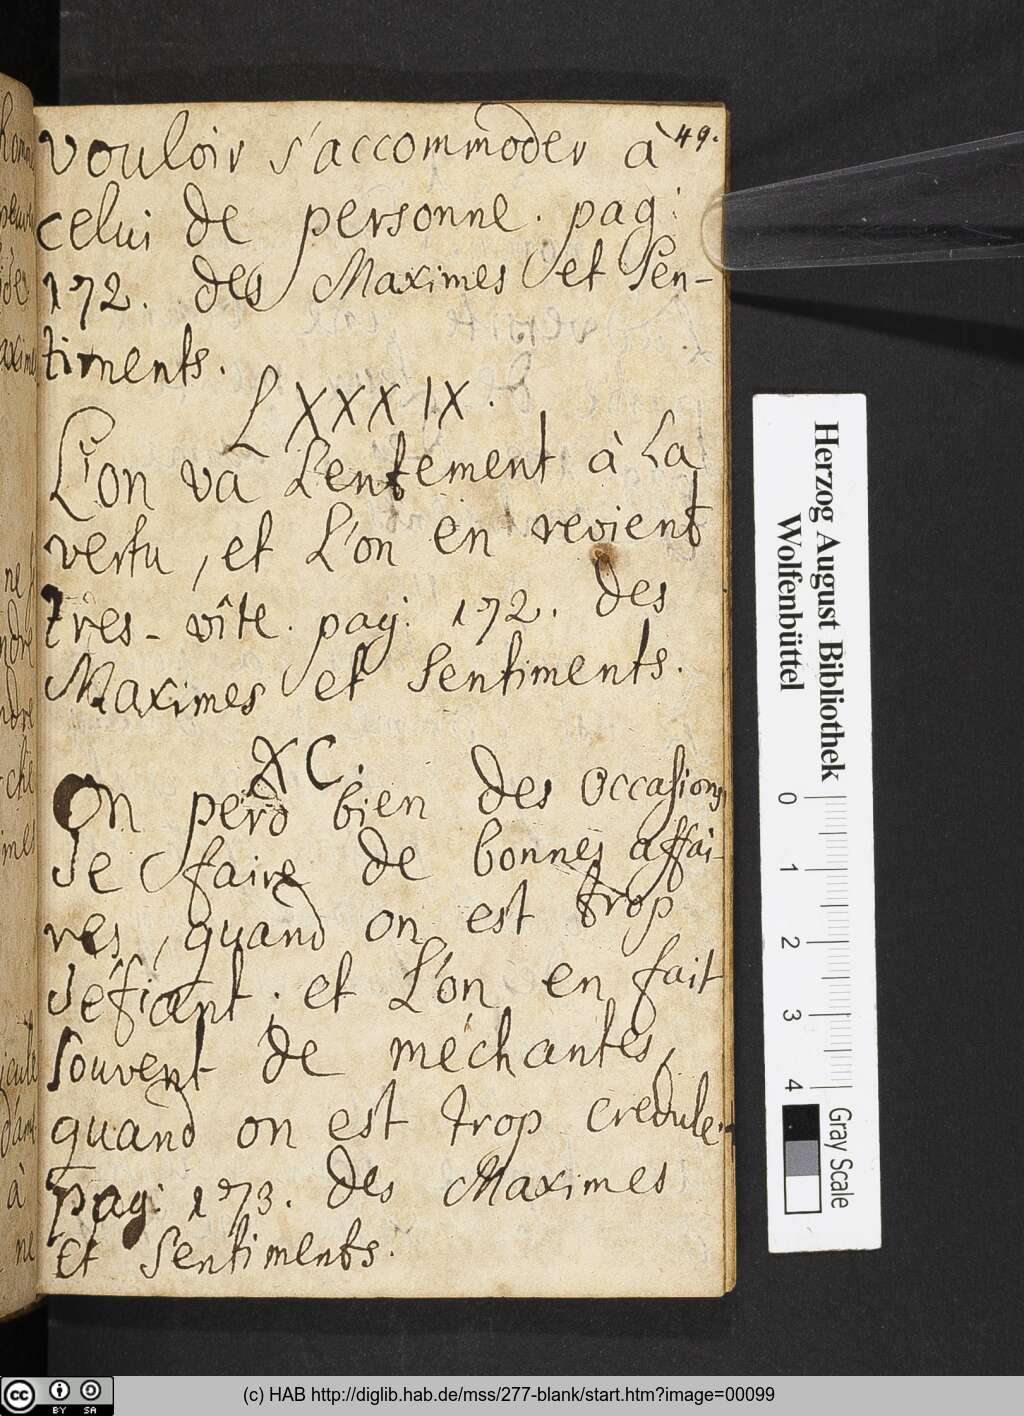 49.
vouloir s'accommoder à
celui de personne. pag:
172. des Maximes et Sen-
timents.
LXXXIX.
L'on va Lentement à La
vertu, et L'on en revient
tres-vîte. pag: 172. des
Maximes et Sentiments.
XC.
On perd bien des occasions
de faire de bonnes affai-
res, quand on est trop
défiant; et L'on en fait
souvent de méchantes,
quand on est trop credule.
pag: 173. des Maximes
et Sentiments.
Herzog August Bibliothek
Wolfenbüttel
0 1 2 3 4
Gray Scale
(c) HAB http://diglib.hab.de/mss/277-blank/start.htm?image=00099
cc BY SA